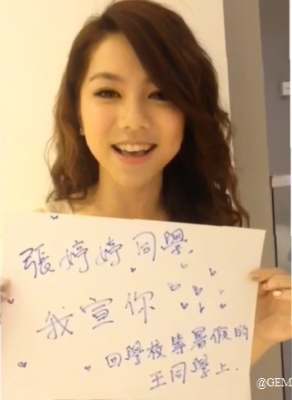 張婷婷同學
我宣你
回學校等暑假的
王同學上.
@GEM